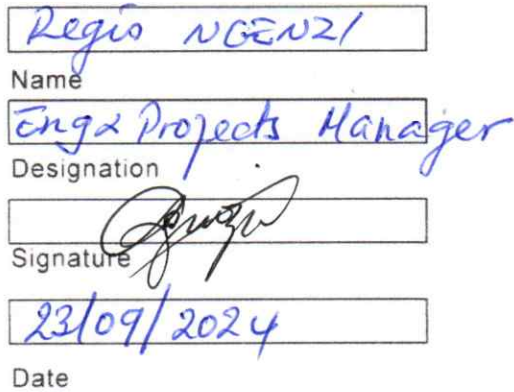 Regis NGENZI
Name
Eng & Projects Manager
Designation
Signature
23/09/2024
Date